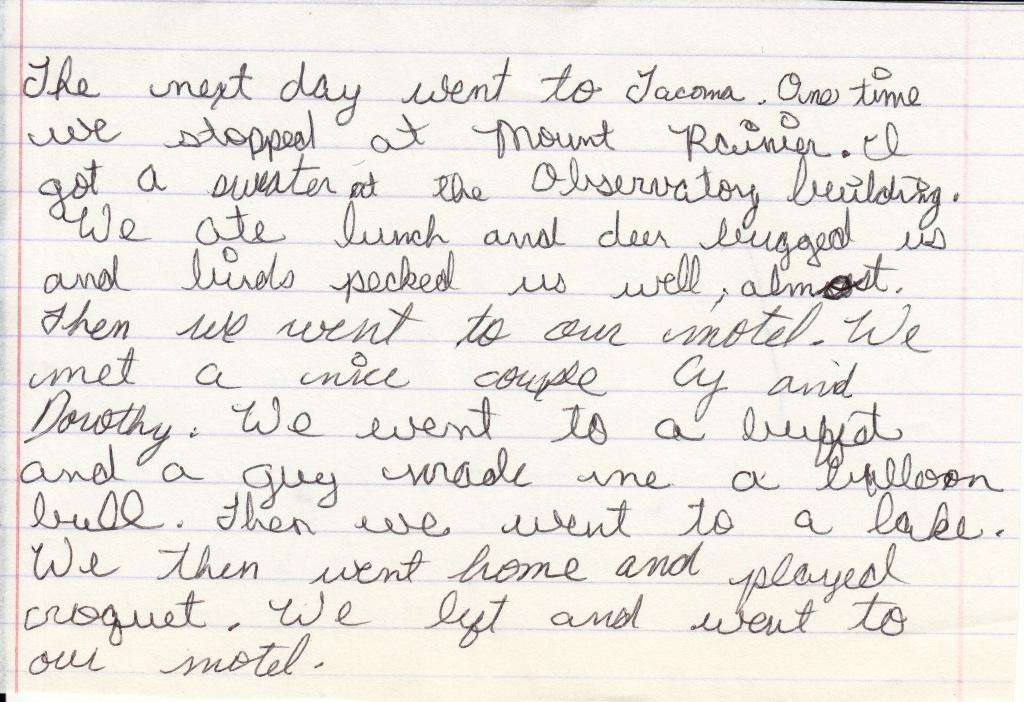 The next day went to Tacoma. One time
we stopped at Mount Rainier. I
got a sweater at the Observatory building.
We ate lunch and deer bugged us
and birds pecked us well, almost.
Then we went to our motel. We
met a nice couple Cy and
Dorothy. We went to a buffet
and a guy made me a balloon
bull. Then we went to a lake.
We then went home and played
croquet. We left and went to
our motel.